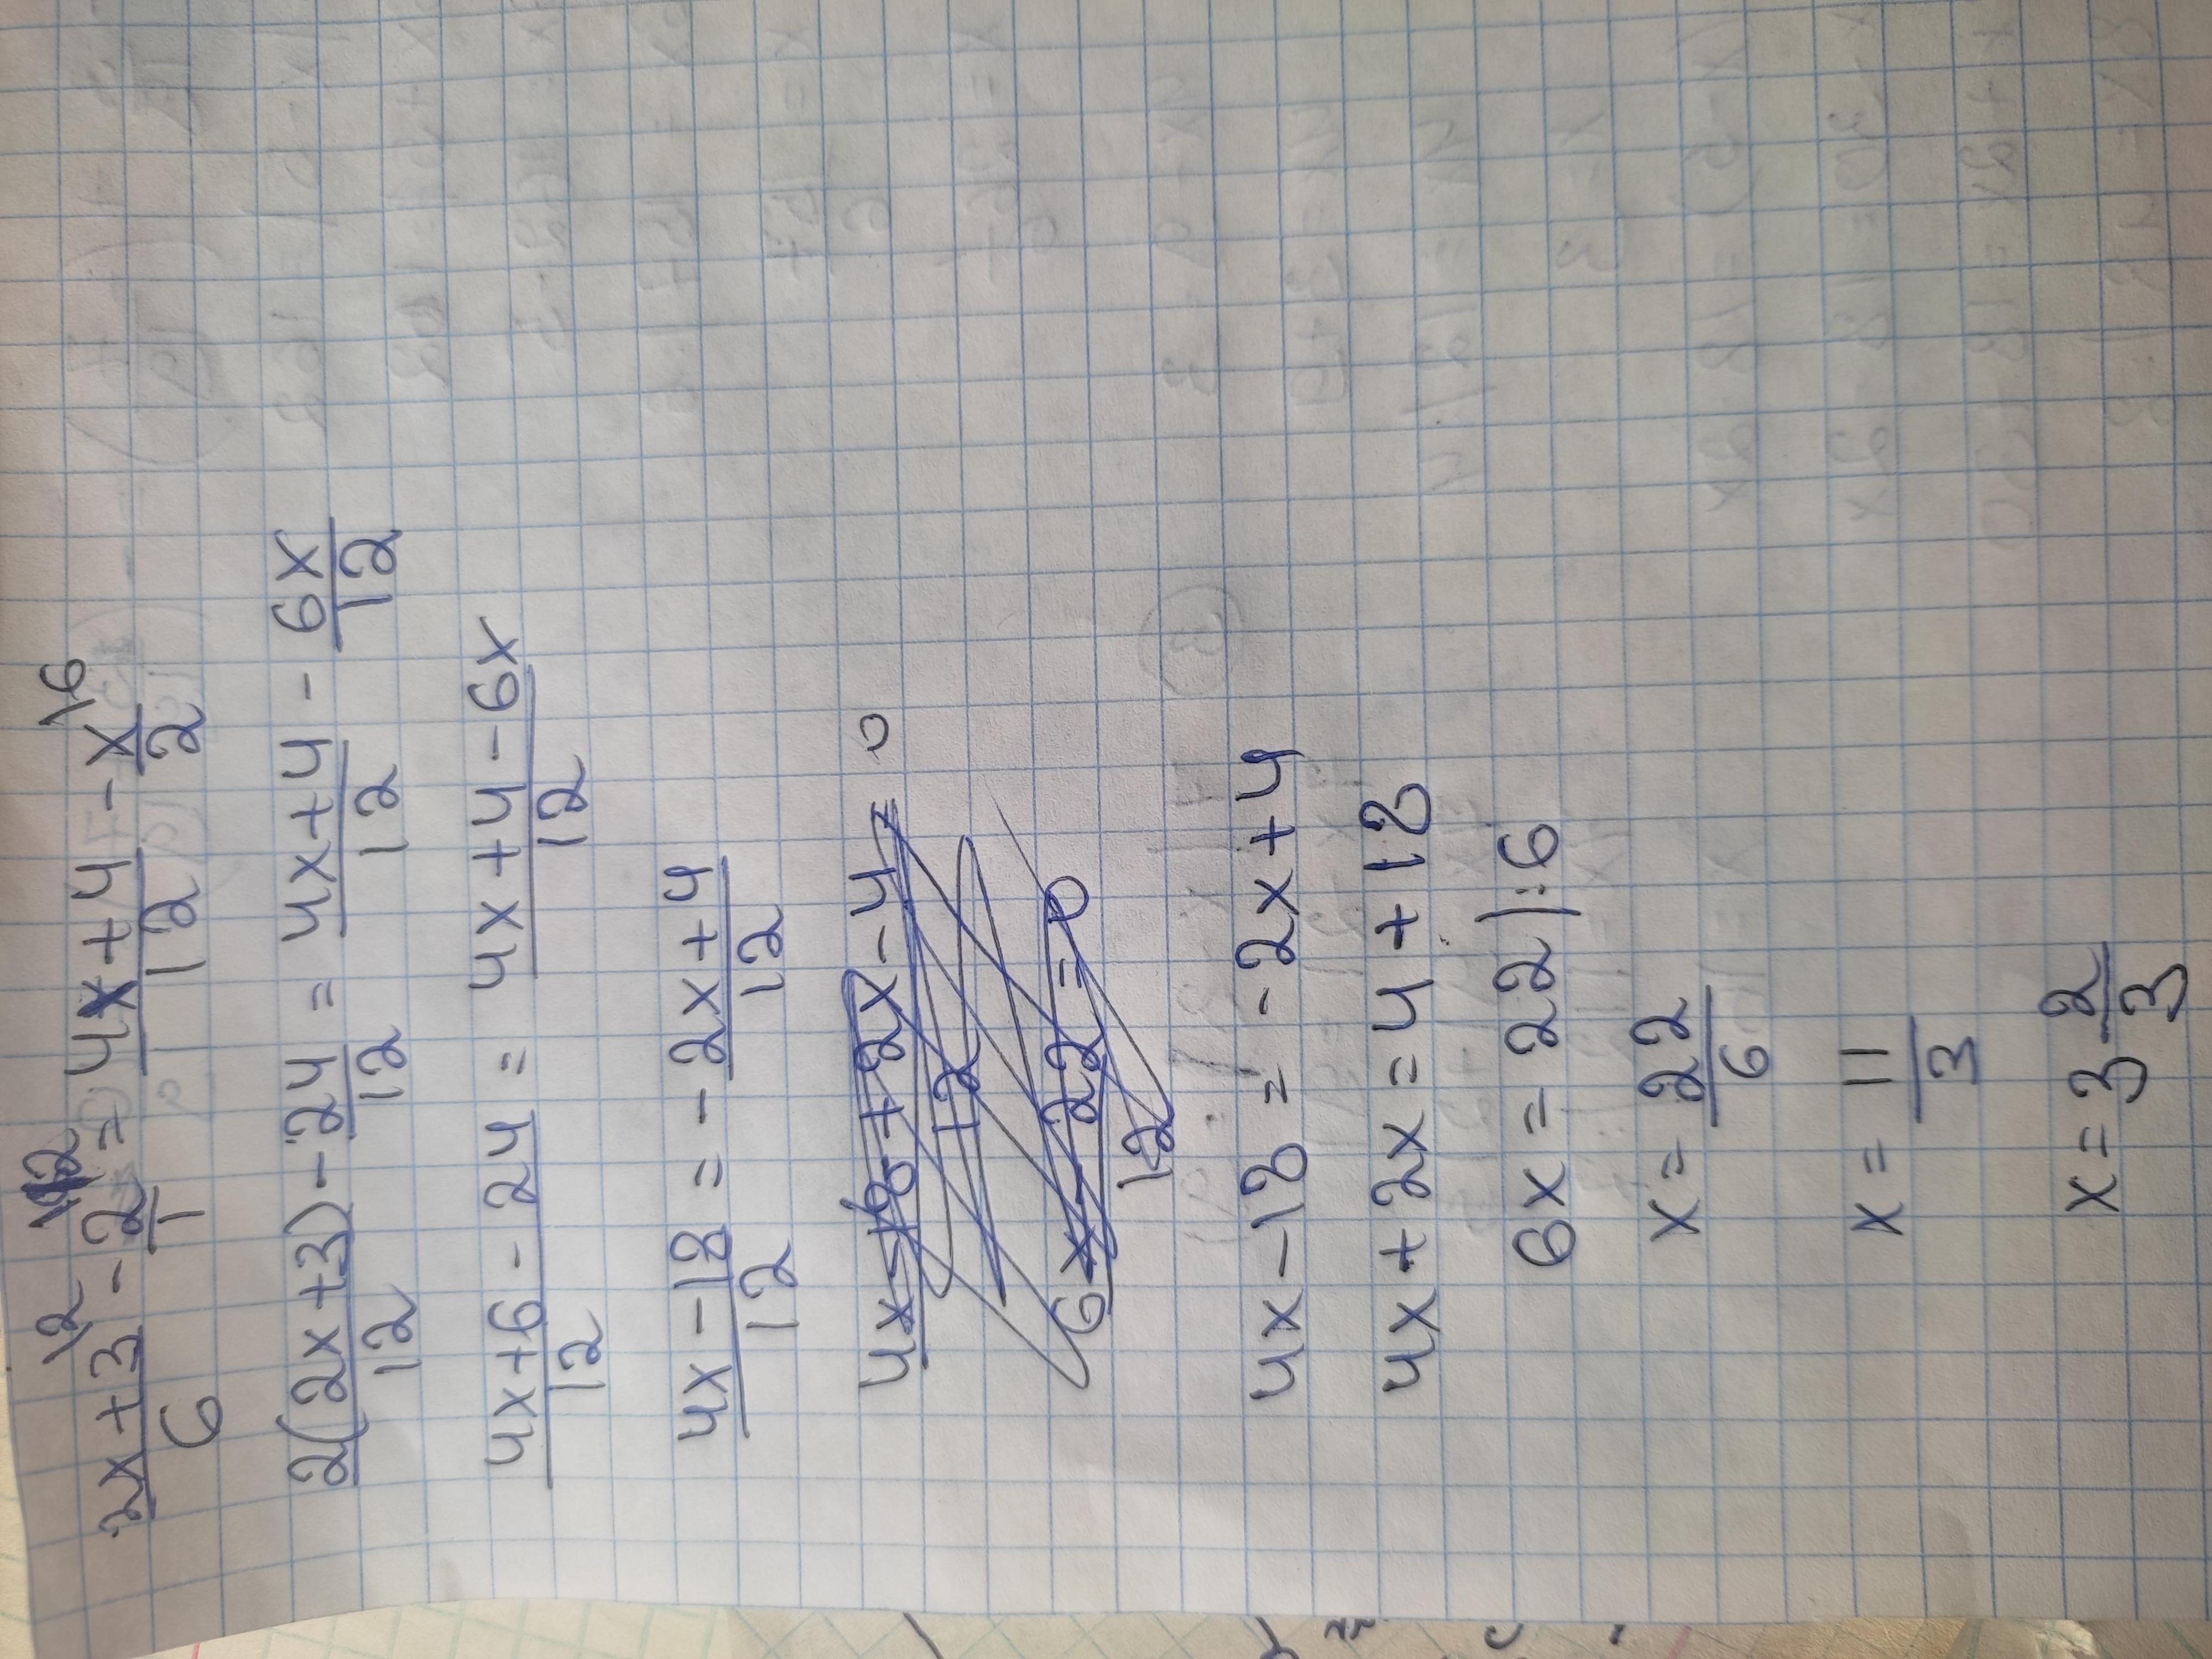 (2x+3)/6 |2 - 2/1 |12 = (4x+4)/12 - x/2 |6
2(2x+3)/12 - 24/12 = (4x+4)/12 - 6x/12
(4x+6-24)/12 = (4x+4-6x)/12
(4x-18)/12 = (-2x+4)/12
4x-18 = -2x+4
4x+2x = 4+18
6x = 22 |:6
x = 22/6
x = 11/3
x = 3 2/3